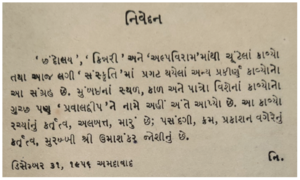 નિવેદન
'છંદોલય', 'કિન્નરી' અને 'અલ્પવિરામ'માંથી ચૂંટેલાં કાવ્યો
તથા આજ લગી 'સંસ્કૃતિ'માં પ્રગટ થયેલાં અન્ય પ્રકીર્ણ કાવ્યોનો
આ સંગ્રહ છે. મુંબઈનાં સ્થળ, કાળ અને પાત્રો વિશેનાં કાવ્યોનો
ગુચ્છ પણ 'પ્રવાલદ્વીપ'ને નામે અહીં અંતે આપ્યો છે. આ કાવ્યો
રચ્યાંનું કર્તૃત્વ, અલબત્ત, મારું છે; પસંદગી, ક્રમ, પ્રકાશન વગેરેનું
કર્તૃત્વ, મુરબ્બી શ્રી ઉમાશંકર જોશીનું છે.
ડિસેમ્બર ૩૧, ૧૯૫૬ અમદાવાદ
નિ.